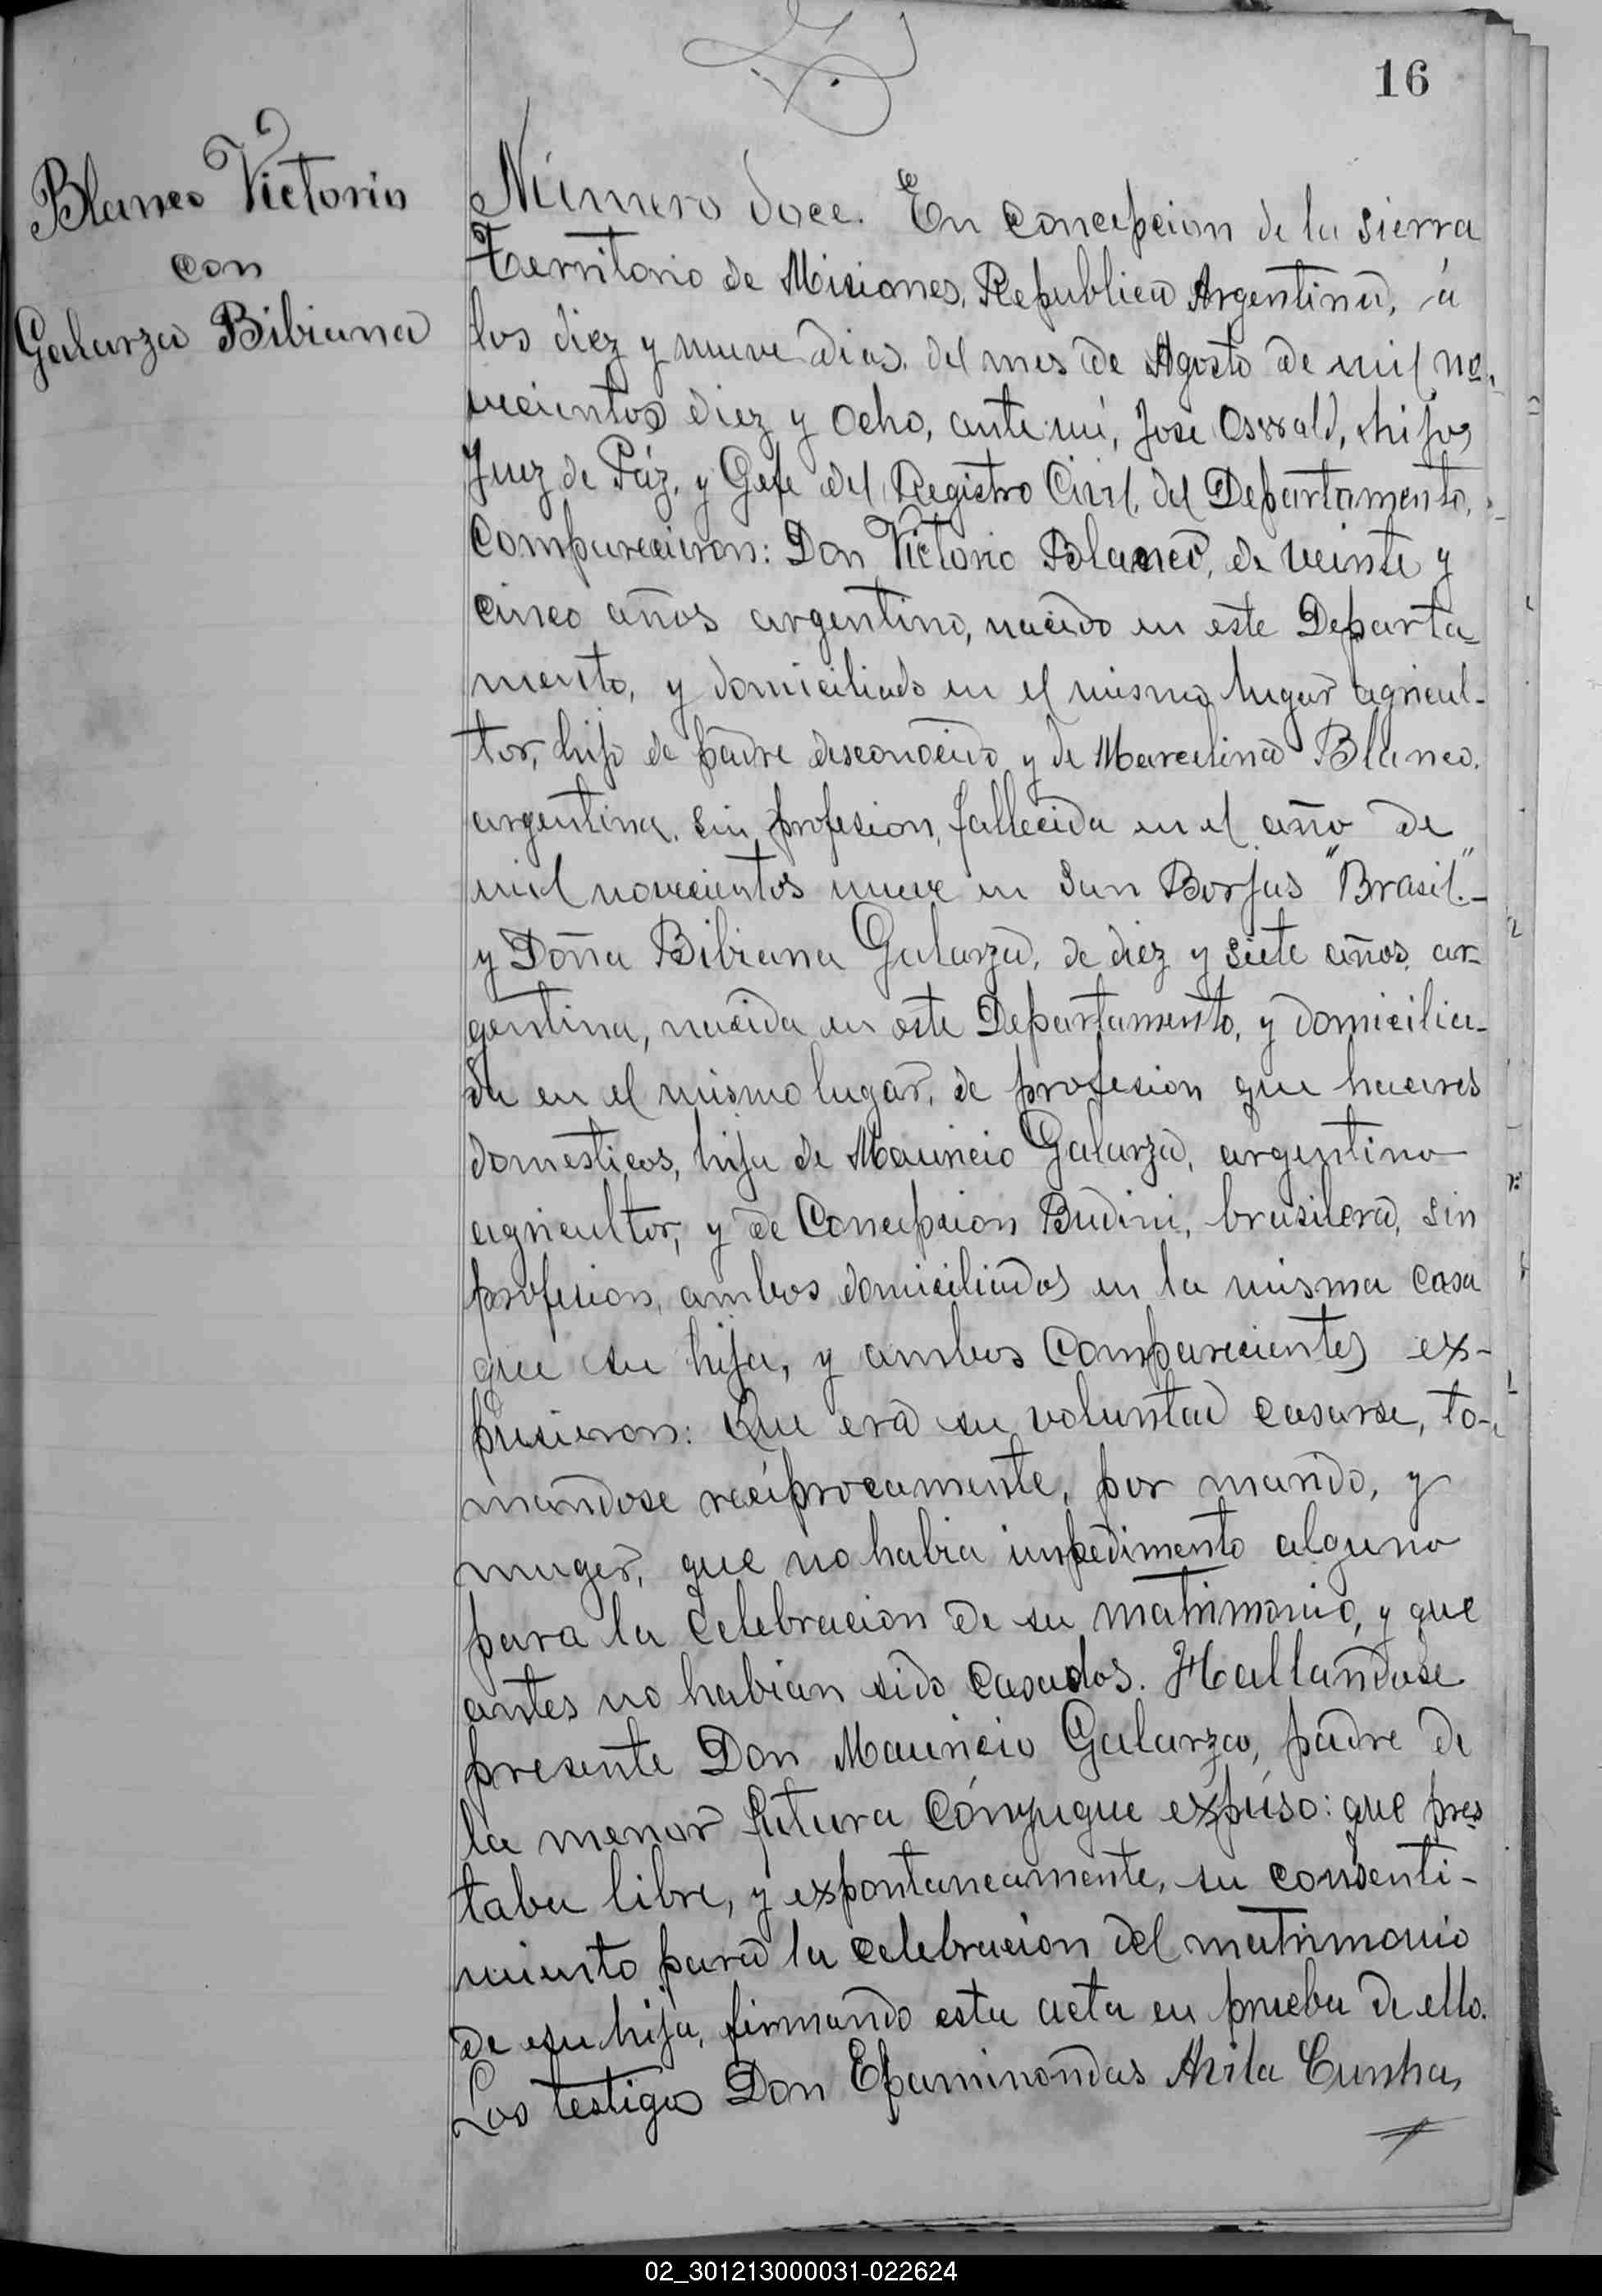 16
Blanco Victorio
con
Galarza Bibiana
Número doce. En Concepcion de la Sierra
Territorio de Misiones, Republica Argentina, á
los diez y nueve dias, del mes de Agosto de mil no-
vecientos diez y ocho, ante mí, José Oswald, hijo,
Juez de Páz, y Gefe del Registro Civil, del Departamento,
Comparecieron: Don Victorio Blanco, de veinte y
cinco años argentino, nacido en este Departa-
mento, y domiciliado en el mismo lugar agricul-
tor, hijo de padre desconocido y de Marcelina Blanco,
argentina, sin profesion, fallecida en el año de
mil novecientos nueve en San Borjas "Brasil".-
y Doña Bibiana Galarza, de diez y siete años, ar-
gentina, nacida en este Departamento, y domicilia-
da en el mismo lugar, de profesion que haceres
domesticos, hija de Mauricio Galarza, argentino
agricultor, y de Concepcion Budini, brasilera, sin
profesion, ambos domiciliados en la misma casa
que su hija, y ambos Comparecientes ex-
pusieron: Que era su voluntad casarse, to-
mandose recíprocamente, por marido, y
muger, que no habia impedimento alguno
para la celebracion de su matrimonio, y que
antes no habian sido casados. Hallandose
presente Don Mauricio Galarza, padre de
la menor futura cónyugue expúso: que pres
taba libre, y expontaneamente, su consenti-
miento para la celebracion del matrimonio
de su hija, firmando esta acta en prueba de ello.
Los testigos Don Epaminondas Avila Cunha,
02_301213000031-022624